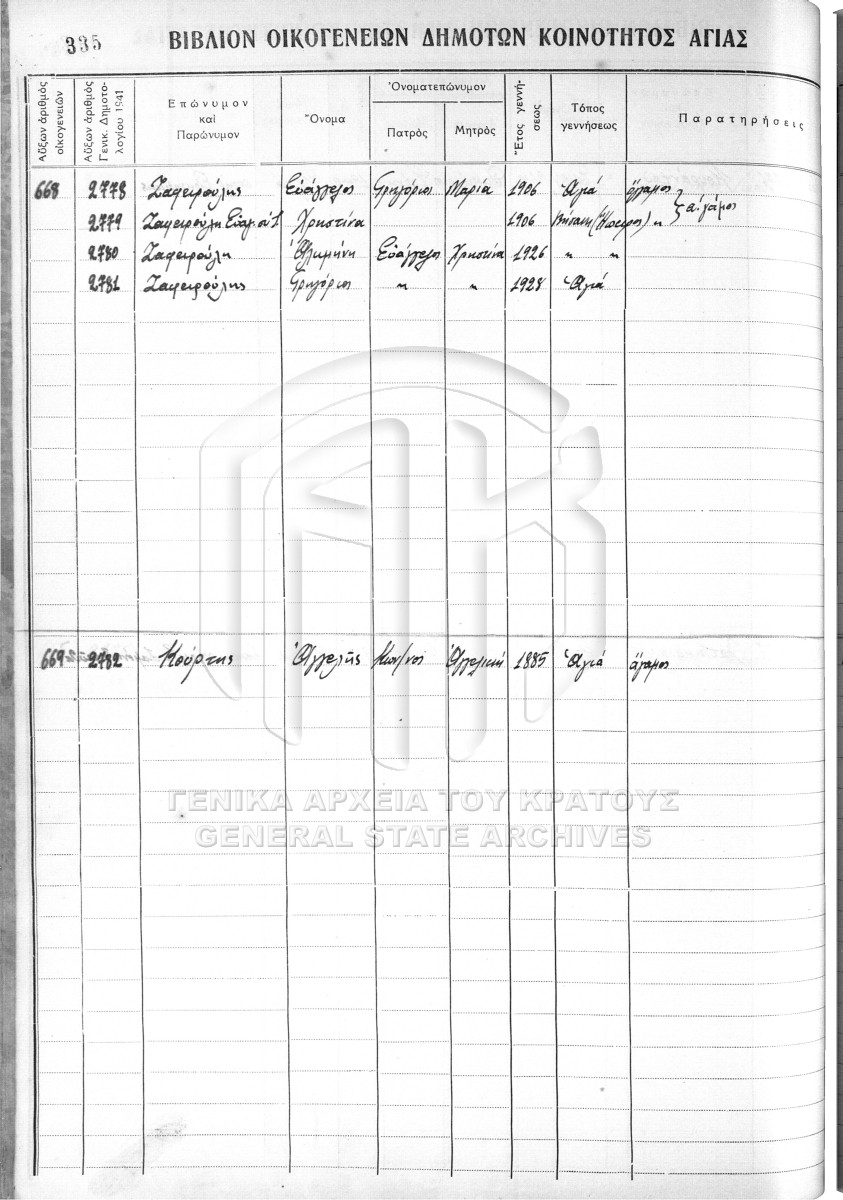 335 ΒΙΒΛΙΟΝ ΟΙΚΟΓΕΝΕΙΩΝ ΔΗΜΟΤΩΝ ΚΟΙΝΟΤΗΤΟΣ ΑΓΙΑΣ
Αὔξων ἀριθμὸς οἰκογενειῶν
Αὔξων ἀριθμὸς Γενικ. Δημοτολογίου 1941
Ἐπώνυμον καὶ Παρώνυμον
Ὄνομα
Ὀνοματεπώνυμον
Πατρὸς
Μητρὸς
Ἔτος γεννήσεως
Τόπος γεννήσεως
Παρατηρήσεις
668 2778 Ζαφειρούλης Εὐάγγελος Γρηγόριος Μαρία 1906 Ἁγιά ἄγαμος
α' γάμος
2779 Ζαφειρούλη Χρηστίνα 1906 (Ἤπειρος) "
2780 Ζαφειρούλη Εὐάγγελος Χρηστίνα 1926 " "
2781 Ζαφειρούλης Γρηγόριος " " 1928 Ἁγιά
669 2782 Κούρτης Ἀγγελῆς Κων/νος Ἀγγελική 1885 Ἁγιά ἄγαμος
ΓΕΝΙΚΑ ΑΡΧΕΙΑ ΤΟΥ ΚΡΑΤΟΥΣ
GENERAL STATE ARCHIVES